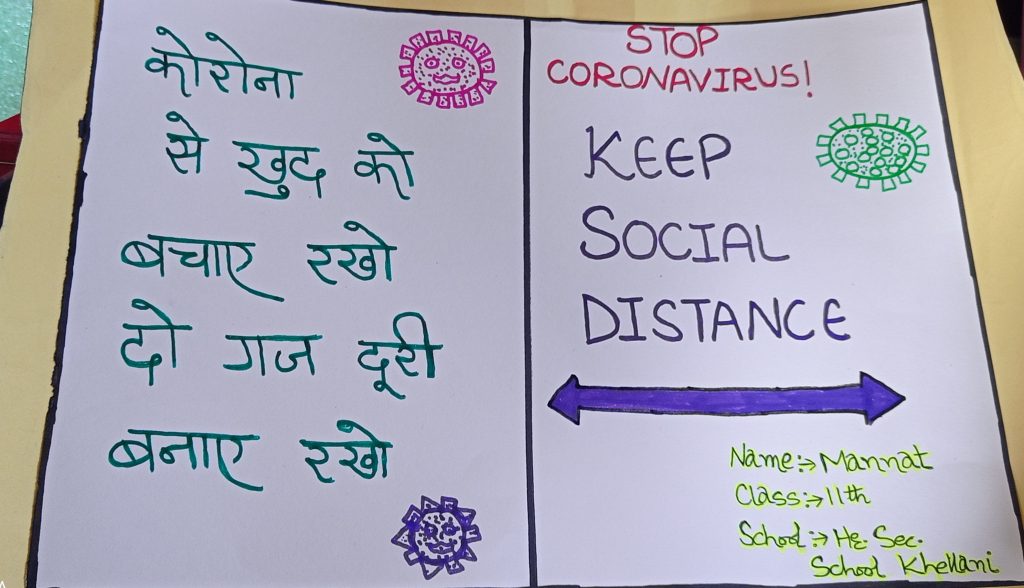 कोरोना
से खुद को
बचाए रखो
दो गज दूरी
बनाए रखो
STOP
CORONAVIRUS!
KEEP
SOCIAL
DISTANCE
Name:→ Mannat
Class:→ 11th
School:→ Hr. Sec.
School Khellani